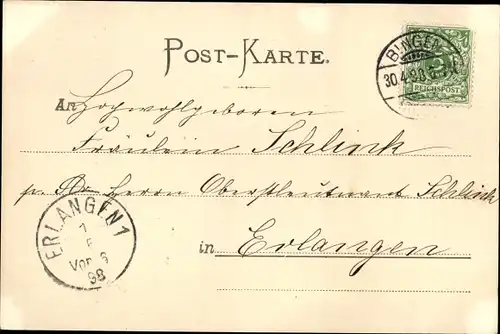 POST-KARTE.
BINGEN
30.4.98
REICHSPOST
An Hochwohlgeboren
Fräulein Schlink
p. Adr. Herrn Oberstleutnant Schlink
in Erlangen
ERLANGEN 1
1
5
Vor
98